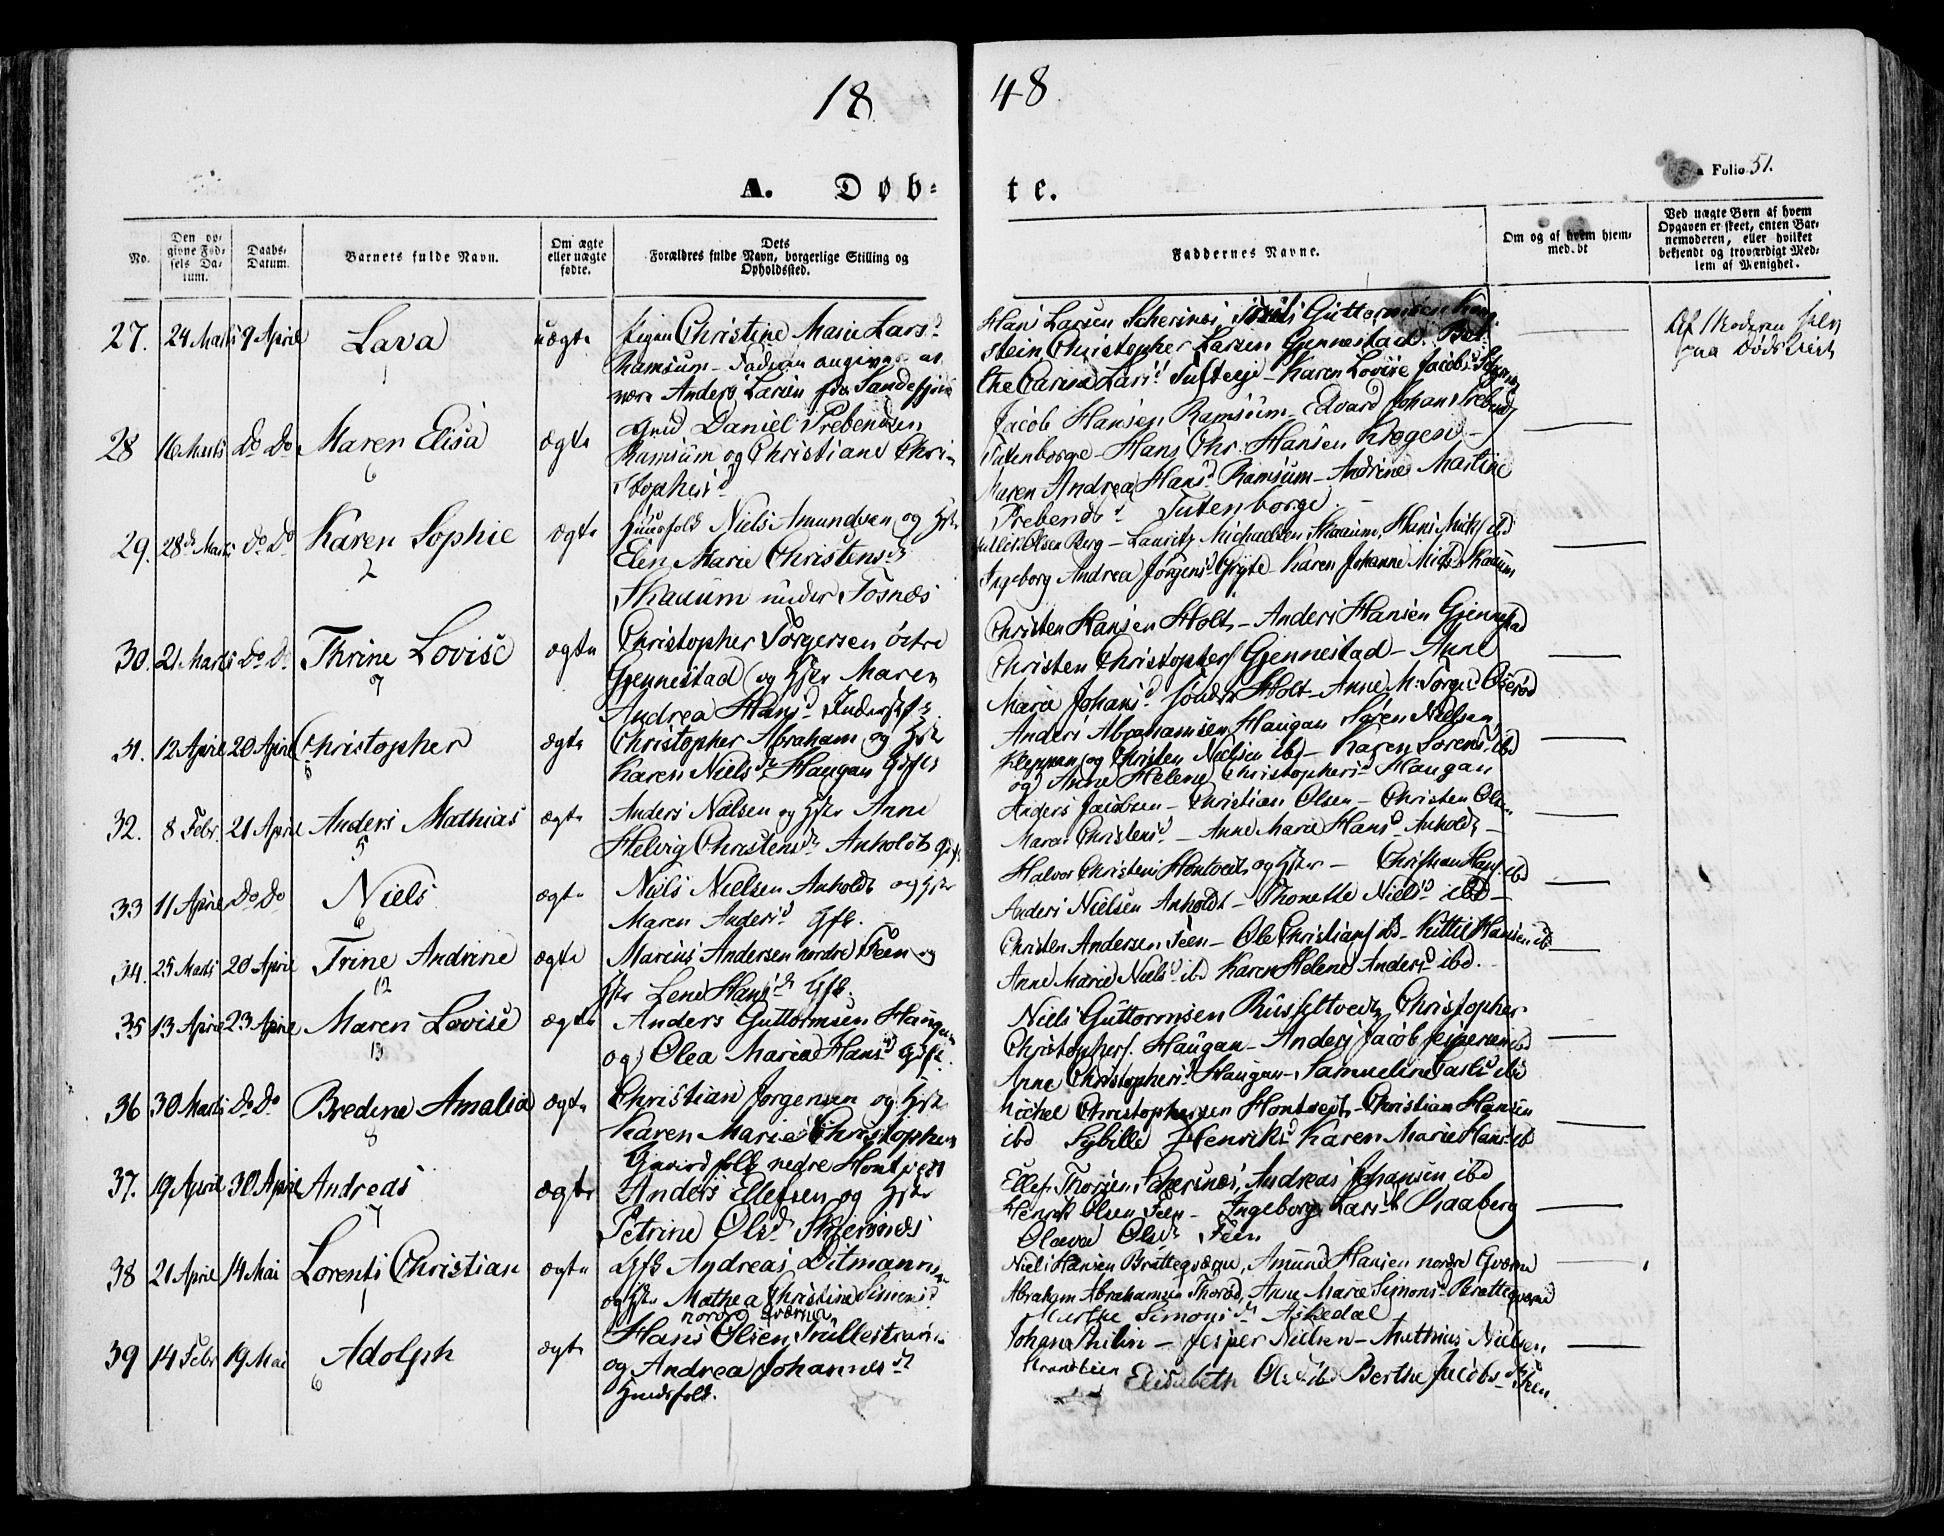 18 48
Folio 51.
A. Døb= te.
No.
Den op=
givne Fød=
sels Da=
tum.
Daabs=
Datum.
Barnets fulde Navn.
Om ægte
eller uægte
fødte.
Dets
Forældres fulde Navn, borgerlige Stilling og
Opholdssted.
Faddernes Navne.
Om og af hvem hjem=
med.bt
Ved uægte Børn af hvem
Opgaven er skeet, enten Bar=
nemoderen, eller hvilket
bekjendt og troværdigt Med=
lem af Menighet.
27. 24 Marts 9 April Lava uægte Pigen Christine Marie Lars d
Ramsum - Faderen angivne at
være Anders Larsen fra Sandefjord
Hans Larsen Schersnes, Guttormsen
stein Christopher Larsen Gjennestad
the Carina Lars d - Karen Lovise Jacobs d
Af Moderen selv
28 16 Marts Do Do Maren Elisa ægte Gmd Daniel Prebensen
Ramsum og Christiane Chri=
stophers d
Jacob Hansen Ramsum - Edvard Johan Prebens
Tutenborge - Hans Chr. Hansen
Maren Andrea Hans d Ramsum - Andrine Martine
Prebens d Tutenborge
29. 28 de Marts Do Do Karen Sophie ægte Huusfolk Niels Amundsen og Hstr
Elen Marie Christens dt
Skauum under Fosnæs
Olsen Berg - Lauritz Michaelsen Skauum, Hans ibd
Ingeborg Andrea Jørgens d - Karen Johanne Skauum
30. 21 Marts Do Do Thrine Lovise ægte Christopher Torgersen østre
Gjennestad og Hstr Maren
Andrea Hans d
Christen Hansen Holt - Anders Hansen Gjennestad
Christen Christophers Gjennestad - Anne
Marie Johans d søndre Holt - Anne M. Torgers
31. 12 April 20 April Christopher ægte Christopher Abraham og Hstr
Karen Niels dt Haugan Gjfl
Anders Abrahamsen Haugan Søren Nielsen
og Christen Nielsen ibd - Karen Sørens d ibd
og Anne Helene Christophers d Haugan
32. 8 Febr. 21 April Anders Mathias ægte Anders Nielsen og Hstr Anne
Helvig Christens dt Anholdt
Anders Jacobsen - Christian Olsen - Christen Olsen
Maren Christens d - Anne Marie Hans d Anholdt -
33 11 April Do Do Niels ægte Niels Nielsen Anholdt og Hstr
Maren Anders d Gfl.
Halvor Christens Hontvedt og Hstr - Christian Hans. ibd
Anders Nielsen Anholdt - Thonette Niels d ibd
34. 25 Marts 20 April Trine Andrine ægte Marius Andersen nordre Feen og
Hstr Lene Hans dt Gfl.
Christen Andersen Feen - Ole Christians ibd - Kittil Hansen ibd
Anne Marie Niels d ibd Karen Helene Anders d ibd.
35 13 April 23 April Maren Lovise ægte Anders Guttormsen Haugan
og Olea Maria Hans d Gfl.
Niels Guttormsen Russeltvedt Christopher
Christophers. Haugan - Anders Jacob Jespersen ibd
Anne Christophers d Haugan - Samueline Lars d ibd
36 30 Marts Do Do Bredine Amalia ægte Christian Jørgensen og Hstr
Karen Marie Christophers
Gaardfolk nedre Hontvedt
Michel Christophersen Hontvedt - Christian Hansen
ibd Sybille Henriks d Karen Marie Hans d ibd
37. 19 April 30 April Andreas ægte Anders Ellefsen og Hstr
Petrine Ols d Skjersnæs
Ellef Thorsen Schersnes, Andreas Johansen ibd
Henrik Olsen Feen - Ingeborg Lars dt Raaberg
Olava Ols dt Feen
38 21 April 14 Mai Lorents Christian ægte Gfl Andreas Ditmann
og Hstr Mathea Christine Simons d
nordre Qværne
Niels Hansen Bratteqværne, Amund Hansen nordre Qværne
Abraham Abrahamsen Thorød, Anne Marie Simons d Bratteqværne
Simons dt Askedal
39 14 Febr 19 Mai Adolph ægte Hans Olsen Trullestrand
og Andrea Johannes dt
Huusfolk.
Johan Philip - Jesper Nielsen - Mathias Nielsen
Elisabeth Ols d ibd Berthe Jacobs dt Feen